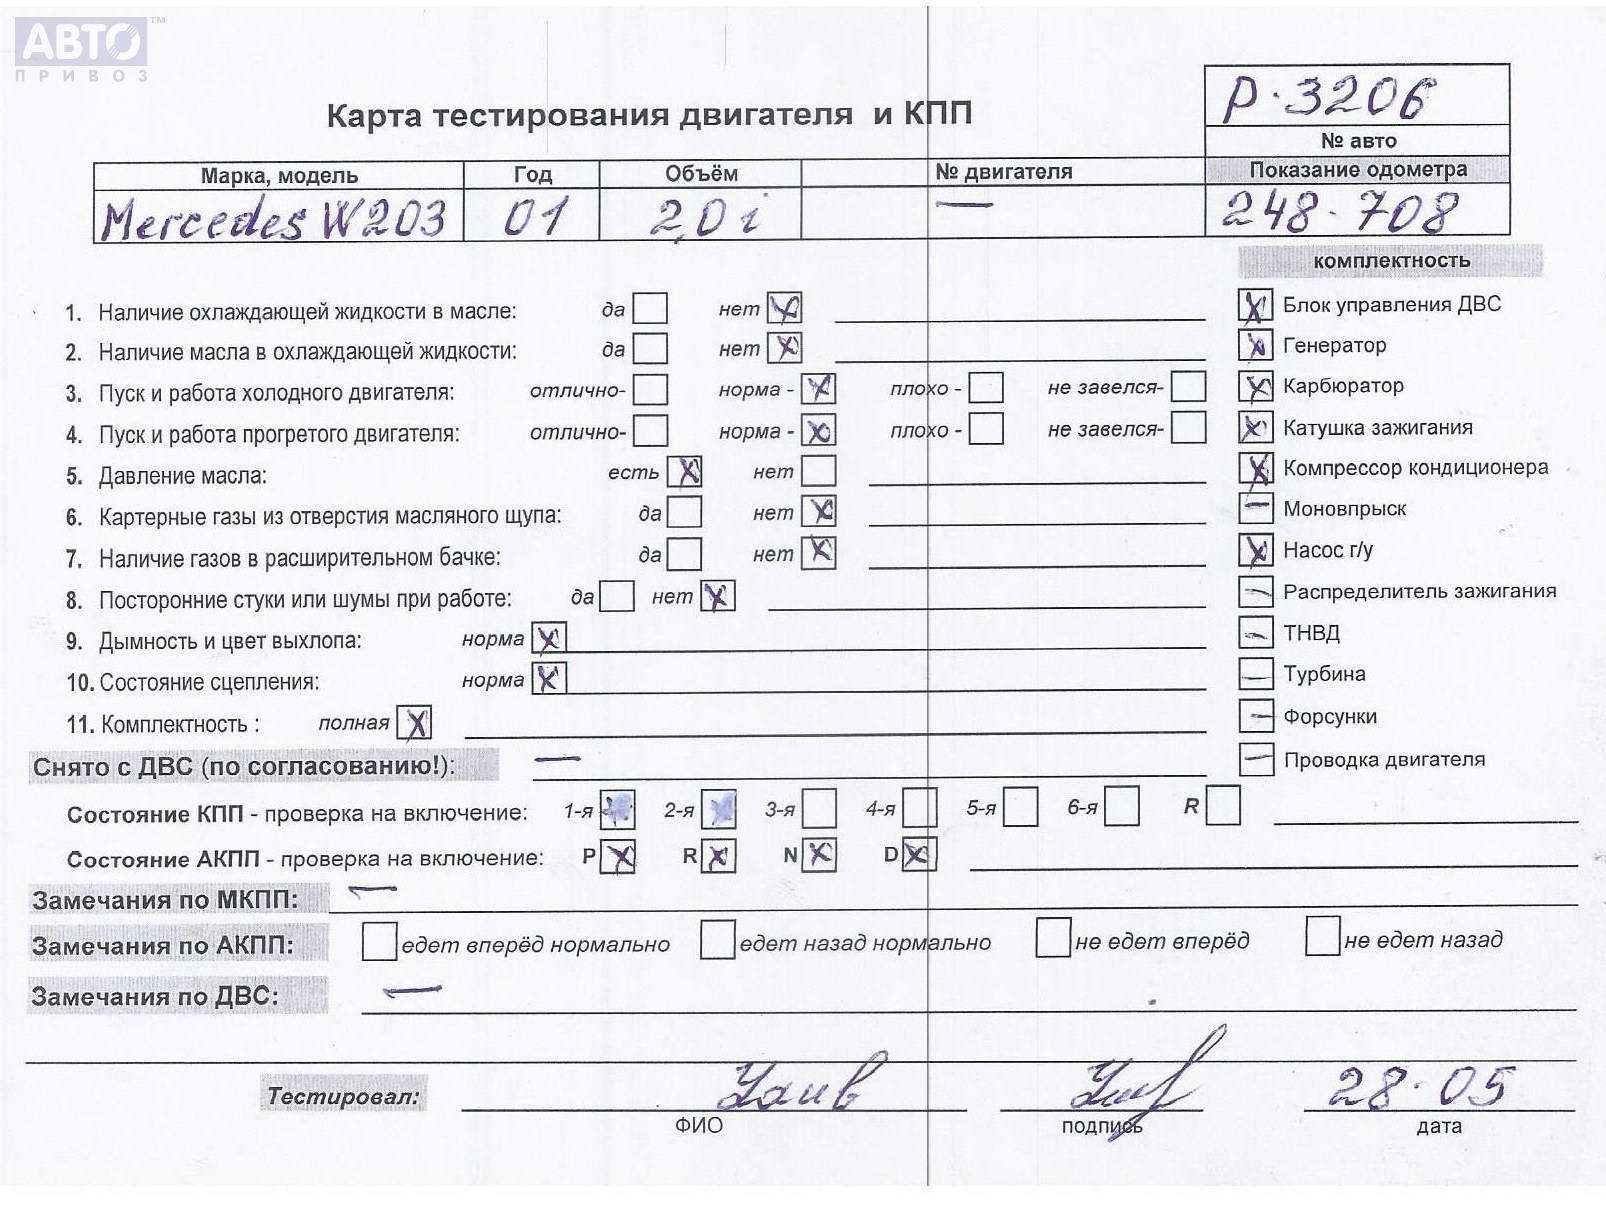 АВТО™
ПРИВОЗ
Карта тестирования двигателя и КПП
Р·3206
№ авто
Марка, модель Год Объём № двигателя Показание одометра
Mercedes W203 01 2,0 i — 248·708
комплектность
1. Наличие охлаждающей жидкости в масле: да нет X
Блок управления ДВС X
2. Наличие масла в охлаждающей жидкости: да нет X
Генератор X
3. Пуск и работа холодного двигателя: отлично- норма - X плохо - не завелся-
Карбюратор X
4. Пуск и работа прогретого двигателя: отлично- норма - X плохо - не завелся-
Катушка зажигания X
5. Давление масла: есть X нет
Компрессор кондиционера X
6. Картерные газы из отверстия масляного щупа: да нет X
Моновпрыск —
7. Наличие газов в расширительном бачке: да нет X
Насос г/у X
8. Посторонние стуки или шумы при работе: да нет X
Распределитель зажигания —
9. Дымность и цвет выхлопа: норма X
ТНВД —
10. Состояние сцепления: норма X
Турбина —
11. Комплектность : полная X
Форсунки —
Снято с ДВС (по согласованию!): —
Проводка двигателя —
Состояние КПП - проверка на включение: 1-я 2-я 3-я 4-я 5-я 6-я R
Состояние АКПП - проверка на включение: P X R X N X D X
Замечания по МКПП: —
Замечания по АКПП: едет вперёд нормально едет назад нормально не едет вперёд не едет назад
Замечания по ДВС: —
Тестировал: 28·05
ФИО подпись дата